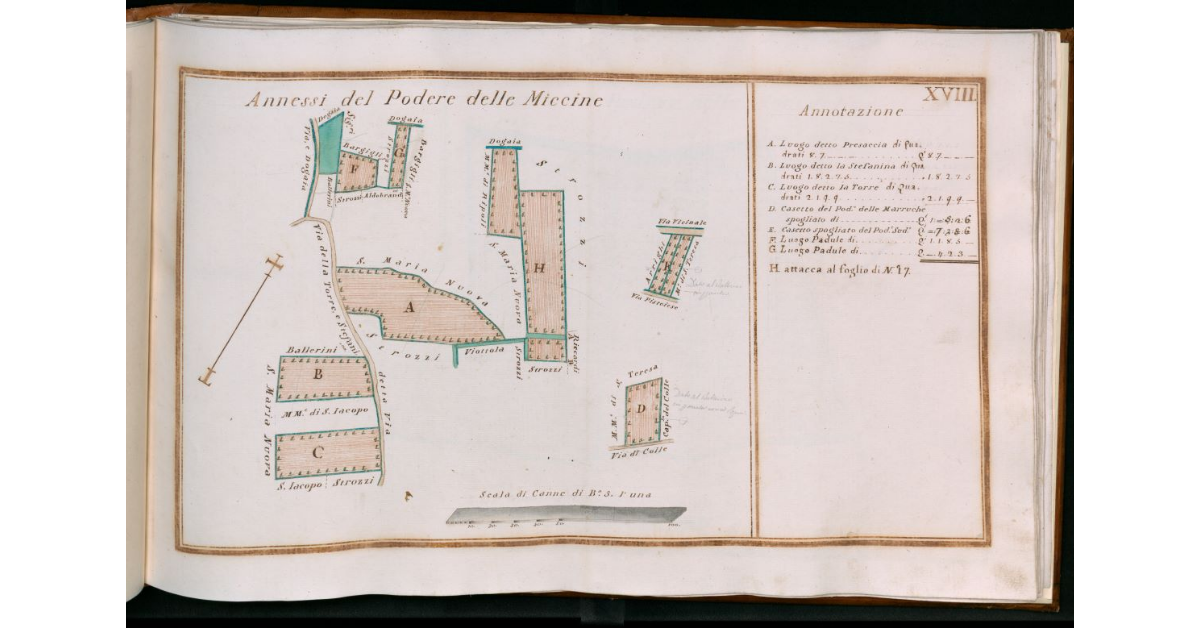 Annessi del Podere delle Miccine
XVIII
Annotazione
A. Luogo detto Presaccia di Qua.
drati 8. 7 Q 8 7
B. Luogo detto la Stefanina di Qua
drati 1. 8. 2 7. 5 1. 8. 2 7 5
C. Luogo detto la Torre di Qua.
drati 2 1 9. 9 2 1. 9. 9
D. Casetto del Pod.e delle Marruche
spogliato di
E. Casetto spogliato del Pod.e Sud.o
F. Luogo Padule di Q 1. 1 8. 5
G. Luogo Padule di Q 4. 2. 3
H. attacca al foglio di N.° 17.
Dogaia
Via, e Dogaia
Bargigli
F
Ballerini
Strozzi Aldobrand
Dogaia
Strozzi
G
Bargigli
Dogaia
MM.e di Ripoli
Strozzi
S. Maria Nuova
H
Riccardi
Strozzi
Strozzi
Via della Torre, e Stefani
S. Maria Nuova
A
Strozzi
Viottola
Via Vicinale
E
S. Teresa
Via Pistoiese
Ballerini
B
S. Maria Nuova
MM.e di S. Iacopo
detta Via
C
S. Iacopo Strozzi
S. Teresa
MM.e di
D
Cap. del Colle
Via di Colle
Scala di Canne di B.a 5. l'una